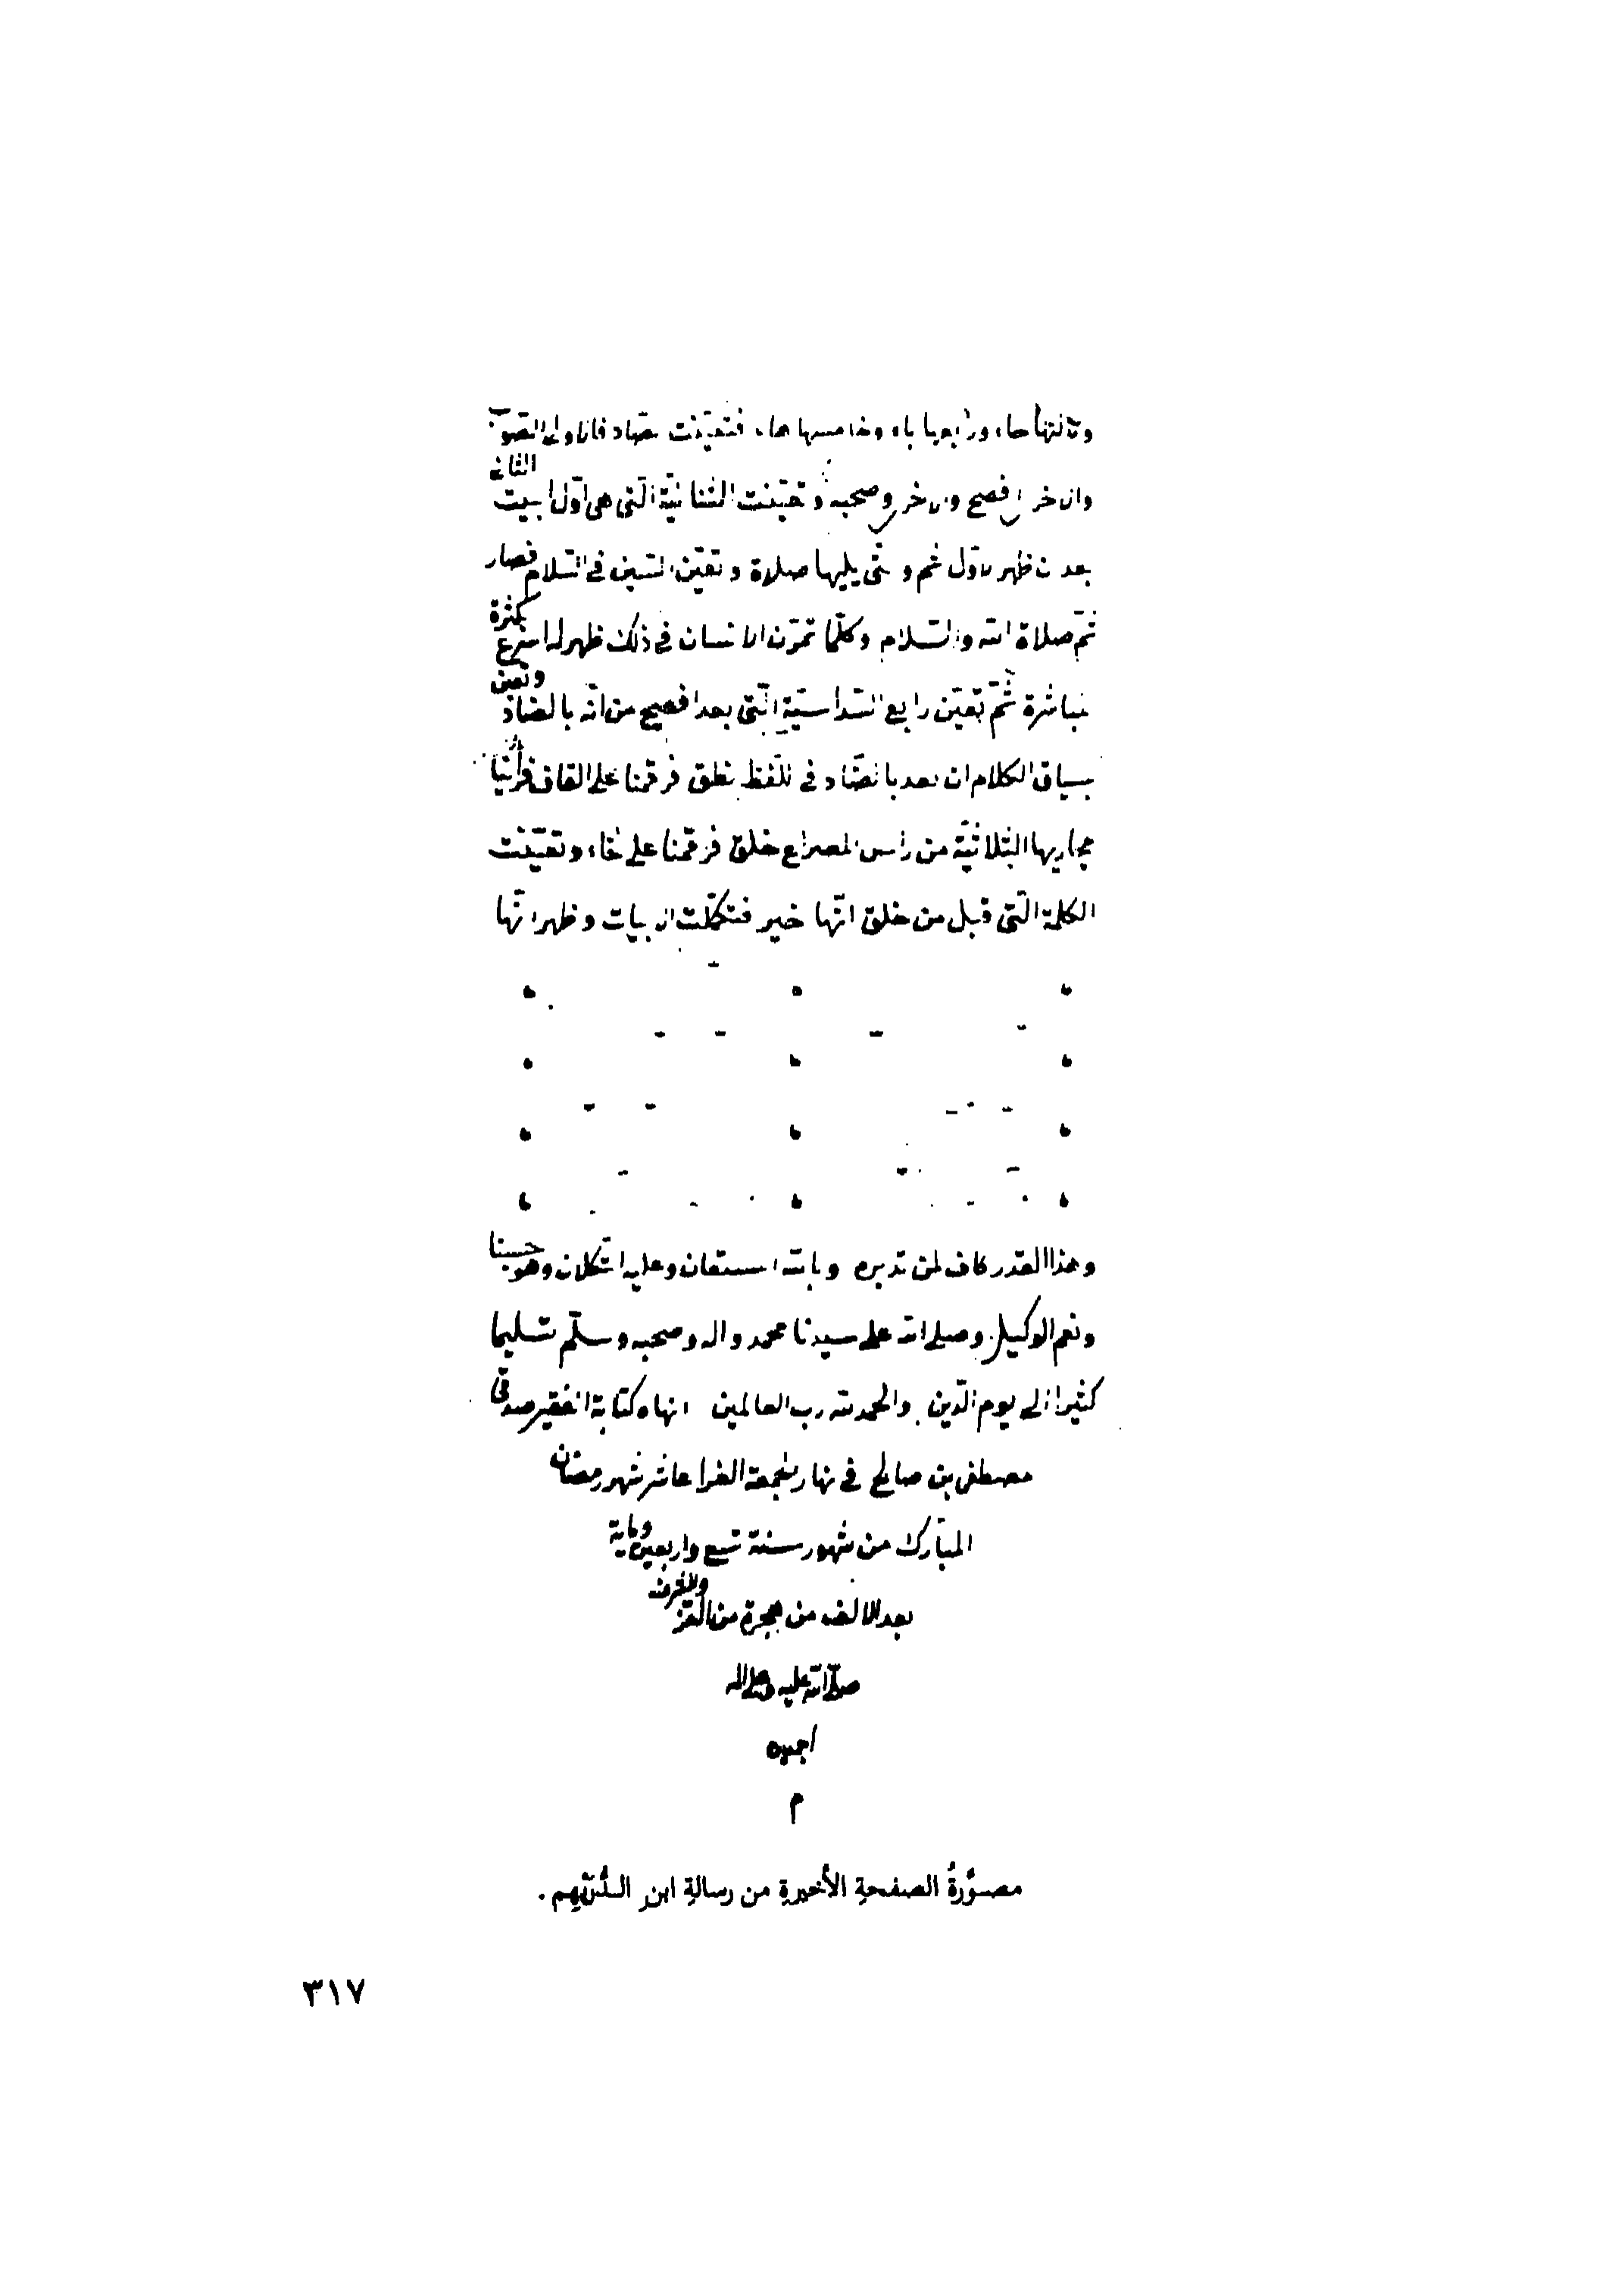 وثالثها حاء ورابعها باء وخامسها هاء فتعينت الصاد فالاولى الصوب
والاخرى افصح والاخرى وصحبه وتعينت الثنائية التي هي اول البيت الثاني
بعد ان ظهر الاول ثم و متى يليها صلاة وتعين السين في السلام فصار
ثم صلاة الله والسلام وكلما تمرن الانسان في ذلك ظهر له اسرع بكثرة
مباشرة ثم تعين رابع السداسية التي بعد افصح من انه بالضاد وتعين
بسياق الكلام ان بعد بالضاد في اللفظ نطق فرقمنا على القاف فرأينا
مجاريها الثلاثية من رأس المصراع خلق فرقمنا على الخاء وتعينت
الكلمة التي قبل من خلق انها خير فتكملت الابيات وظهر انها
وهذا القدر كاف لمن تدبره وبالله المستعان وعليه التكلان وهو حسبنا
ونعم الوكيل وصلى الله على سيدنا محمد واله وصحبه وسلم تسليما
كثيرا الى يوم الدين والحمد لله رب العالمين انهاه كتابة الفقير صدقي
مصطفى بن صالح في نهار الجمعة الغرا عاشر شهر رمضان
المبارك من شهور سنة تسع واربعين وماية
بعد الالف من هجرة من له العز والشرف
صلى الله عليه وعلى اله
اجمعين
م
مصوَّرةُ الصفحةِ الأخيرةِ من رسالةِ ابنِ الدُّرَيْهِم .
٣١٧